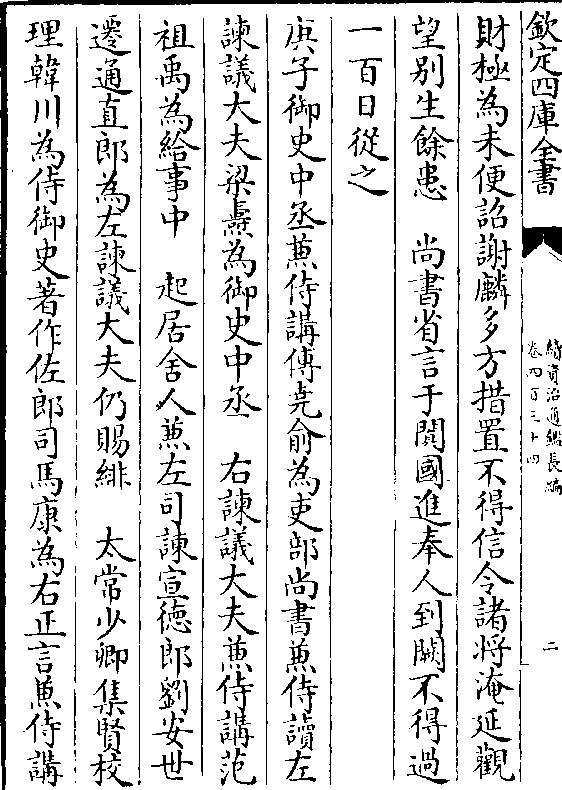 欽定四庫全書
續資治通鑑長編
卷四百三十四
二
財極為未便詔謝麟多方措置不得信令諸將淹延觀
望别生餘患　尚書省言于闐國進奉人到闕不得過
一百日從之
庚子御史中丞兼侍講傅堯俞為吏部尚書兼侍讀左
諫議大夫梁燾為御史中丞　右諫議大夫兼侍講范
祖禹為給事中　起居舍人兼左司諫宣徳郎劉安世
遷通直郎為左諫議大夫仍賜緋　太常少卿集賢校
理韓川為侍御史著作佐郎司馬康為右正言兼侍講